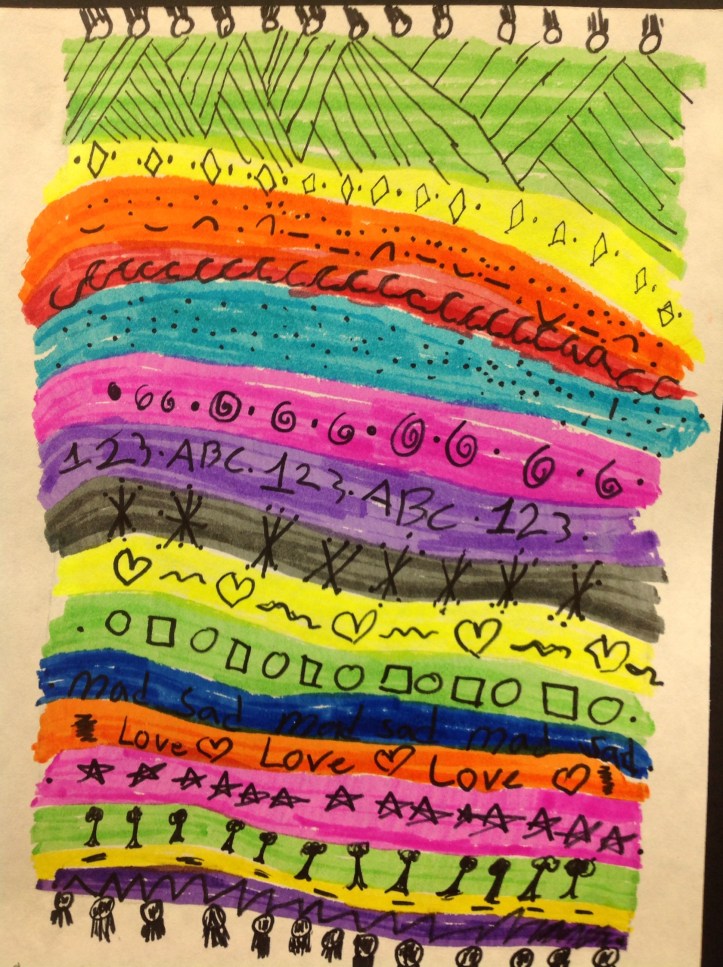 123. ABC. 123. ABC. 123.
mad sad mad sad mad sad
Love Love Love